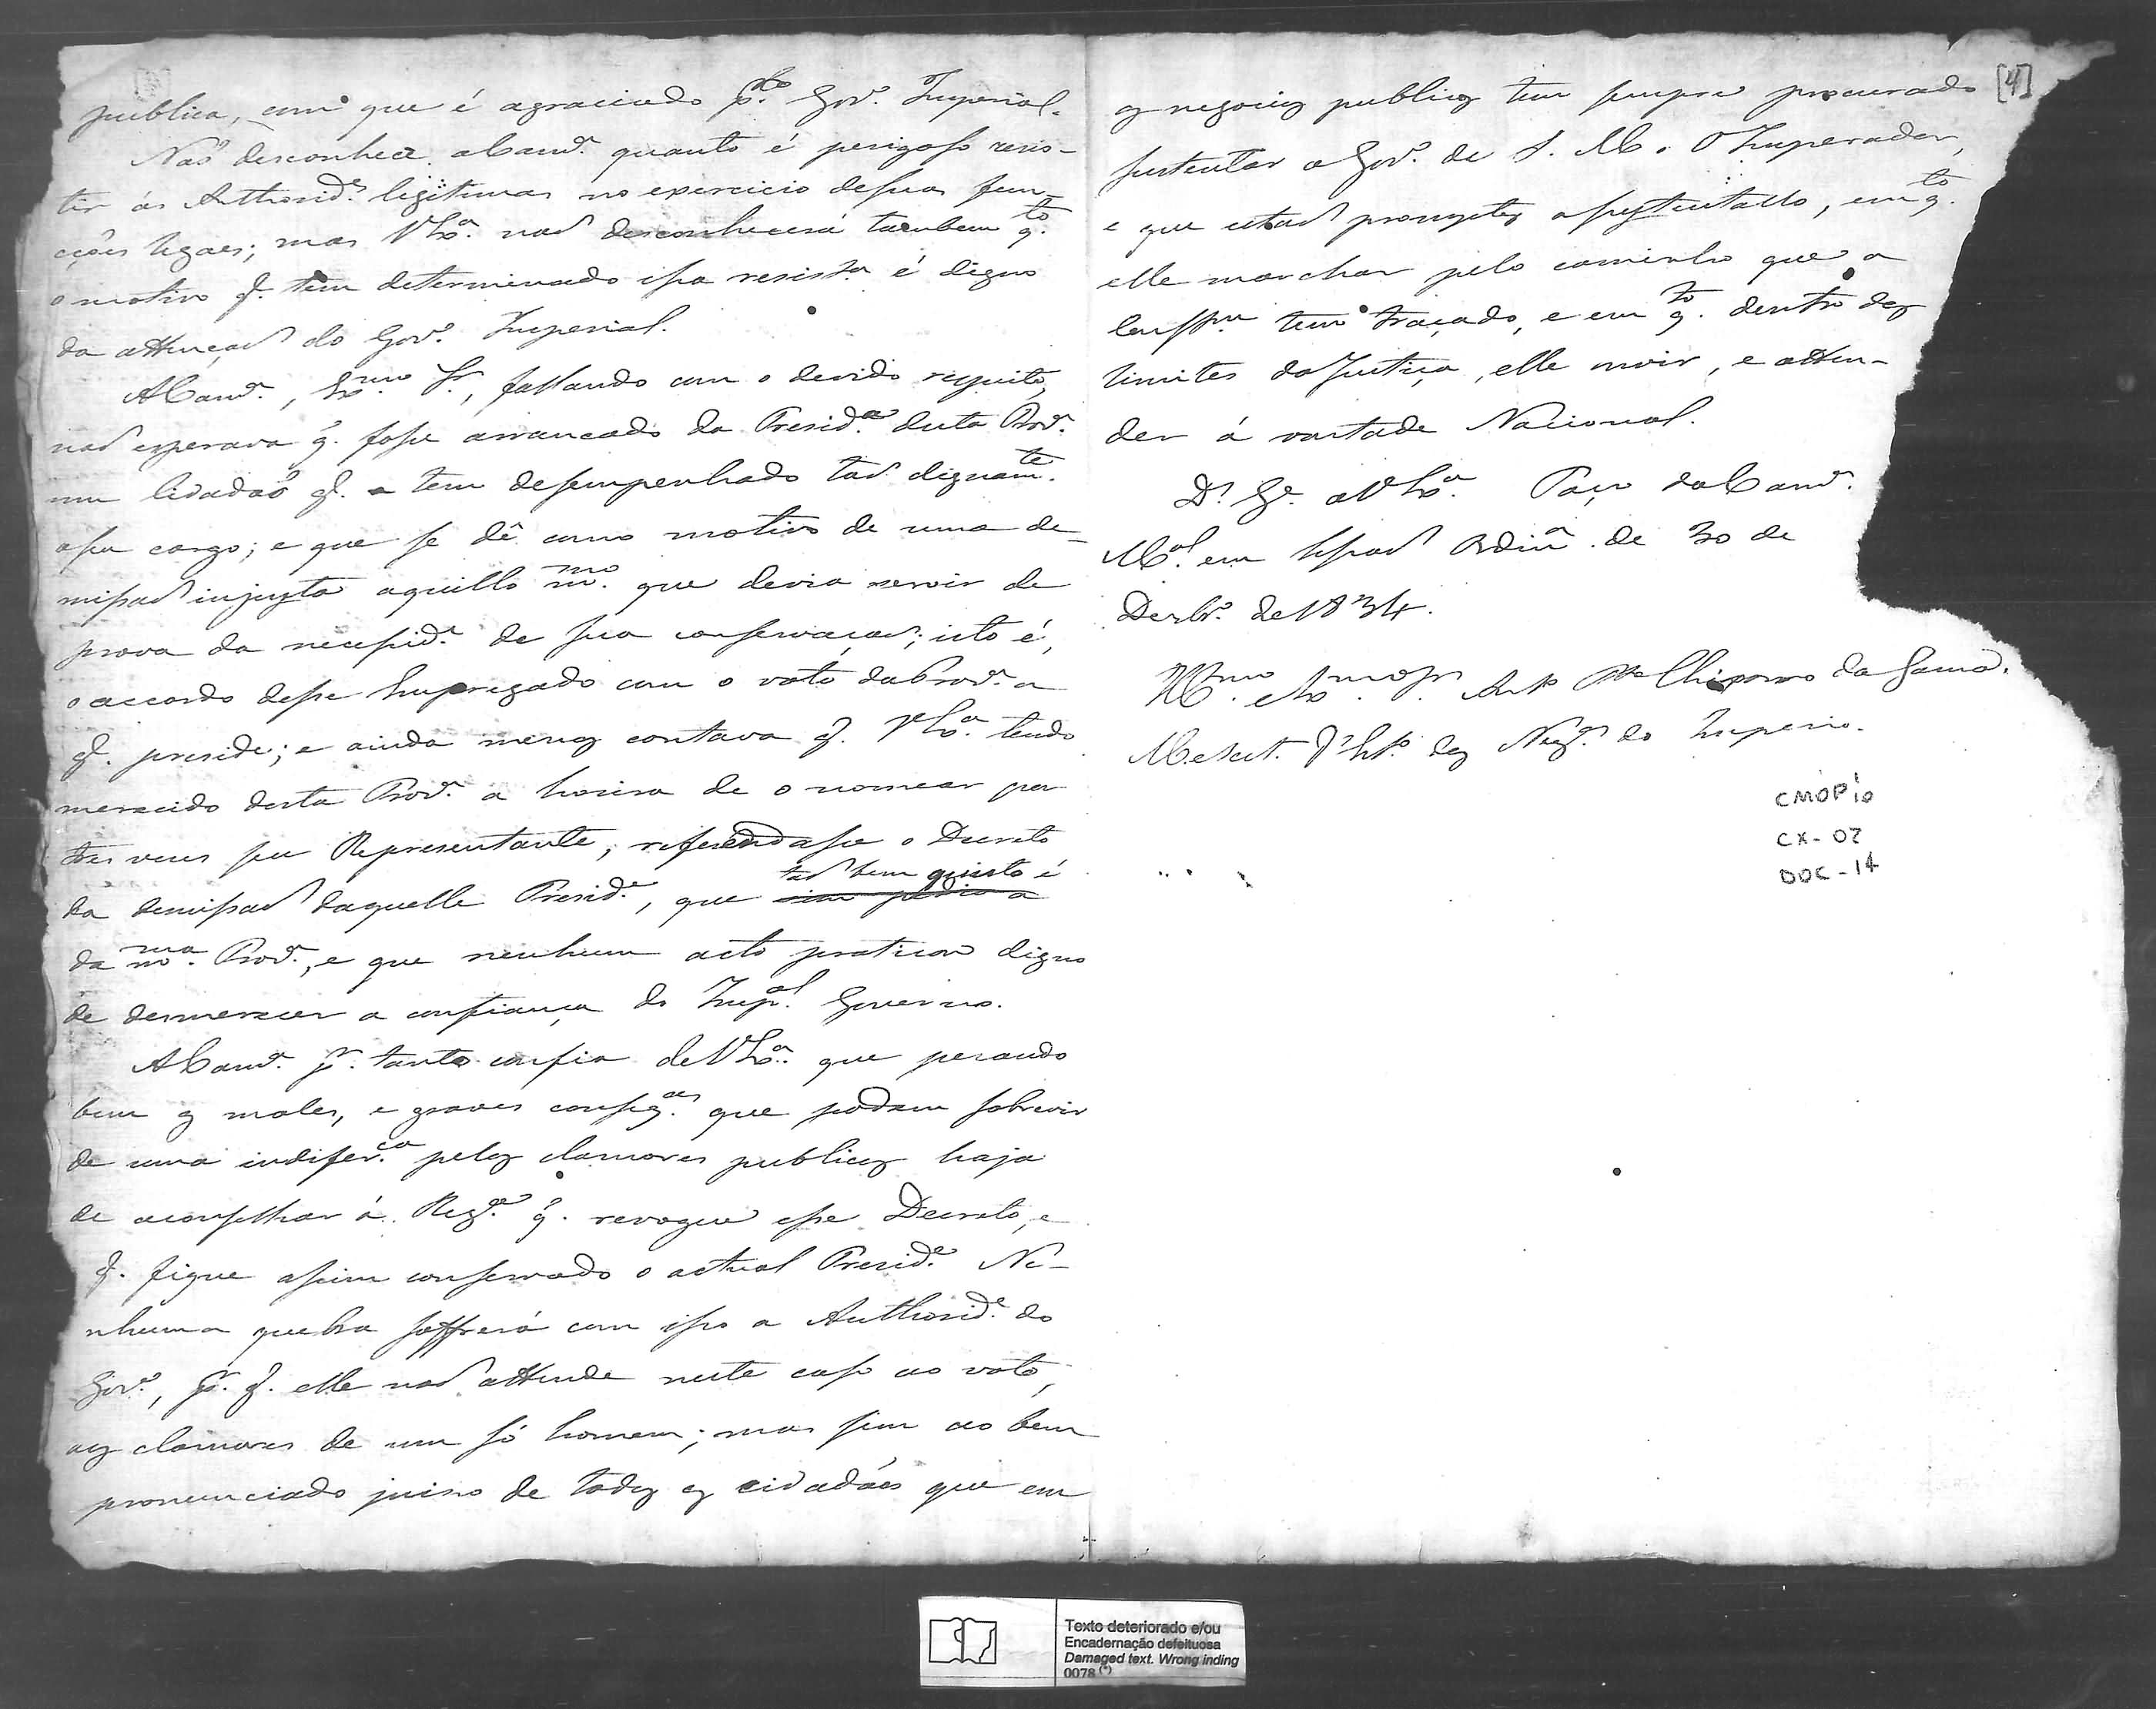 publica, com que é agraciado p.lo Gov.o Imperial.
Naõ desconhece a Camr.a quanto é perigoso resis-
tir ás Authorid.es legitimas no exercicio de suas fun-
cções legaes; mas V Ex.a naõ desconhecerá tambem q.to
o motivo q. tem determinado essa resist.a é digno
da attençaõ do Gov.o Imperial.
A Camr.a, Ex.mo Sr., fallando com o devido respeito,
naõ esperava q. fosse arrancado da Presid.a desta Prov.a
um Cidadaõ q. a tem desempenhado taõ dignam.te
a seu cargo; e que se dê como motivo de uma de-
missaõ injusta aquillo m.mo que devia servir de
prova da necessid.e de sua conservaçaõ; isto é,
o accordo desse Empregado com o voto da Prov.a a
q. preside; e ainda menos contava q. V Ex.a tendo
merecido desta Prov.a a honra de o nomear por
tres vezes seu Representante, referendasse o Decreto
da demissaõ daquelle Presid.e, que taõ bem quisto é
da m.ma Prov.a, e que nenhum acto praticou digno
de desmerecer a confiança do Imp.al Governo.
A Camr.a p.r tanto confia de V Ex.a que pesando
bem os males, e graves conseq.as que podem sobrevir
de uma indifer.ca pelos clamores publicos haja
de aconselhar á Reg.a q. revogue esse Decreto, e
q. fique assim conservado o actual Presid.e Ne-
nhuma quebra soffrerá com isso a Authorid.e do
Gov.o, p.r q. elle naõ attende neste caso ao voto,
aos clamores de um só homem; mas sim ao bem
pronunciado juizo de todos os cidadãos que em
[4]
os negocios publicos tem sempre procurado
sustentar o Gov.o de S. M. O Imperador,
e que estaõ promptos a sustentallo, em q.to
elle marchar pelo caminho que a
Const.am tem traçado, e em q.to dentro dos
limites da Justiça, elle ouvir, e atten-
der á vontade Nacional.
D.s G.e a V Ex.a Paço da Camr.a
M.al em Sessaõ Ordin.a de 30 de
Dezbr.o de 1834.
Ill.mo e Ex.mo Sr. Ant.o Pto Chixorro da Gama.
M.e Secr. d'Est.o dos Neg.os do Imperio.
CMOP
CX-07
DOC-14
Texto deteriorado e/ou
Encadernação defeituosa
Damaged text. Wrong inding
0078 (*)